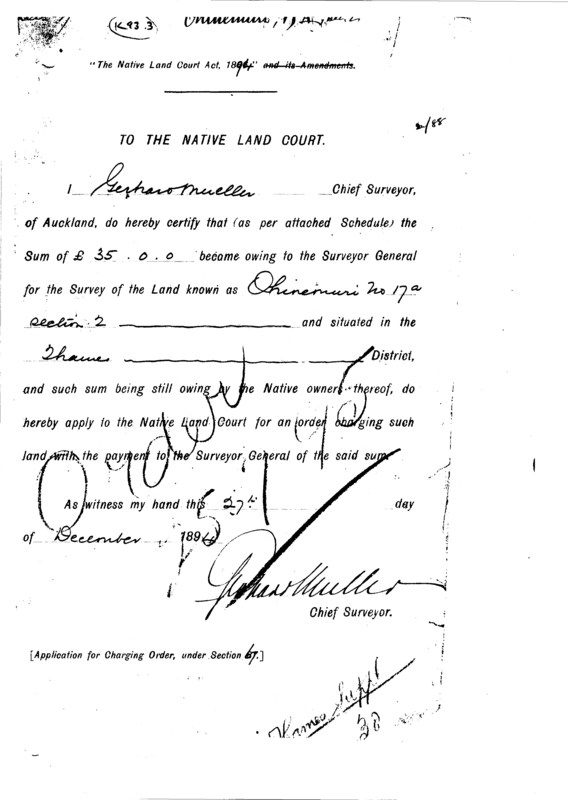 K 93.3
"The Native Land Court Act, 1894" and its Amendments.
2/88
TO THE NATIVE LAND COURT.
I Gerhard Mueller Chief Surveyor,
of Auckland, do hereby certify that (as per attached Schedule) the
Sum of £ 35 . 0 . 0 become owing to the Surveyor General
for the Survey of the Land known as Ohinemuri No 17a
Section 2 and situated in the
Thames District,
and such sum being still owing by the Native owners thereof, do
hereby apply to the Native Land Court for an order charging such
land with the payment to the Surveyor General of the said sum
Order
As witness my hand this 27th day
of December 1894
Gerhard Mueller
Chief Surveyor.
[Application for Charging Order, under Section 67.]
Thames Suppt
38